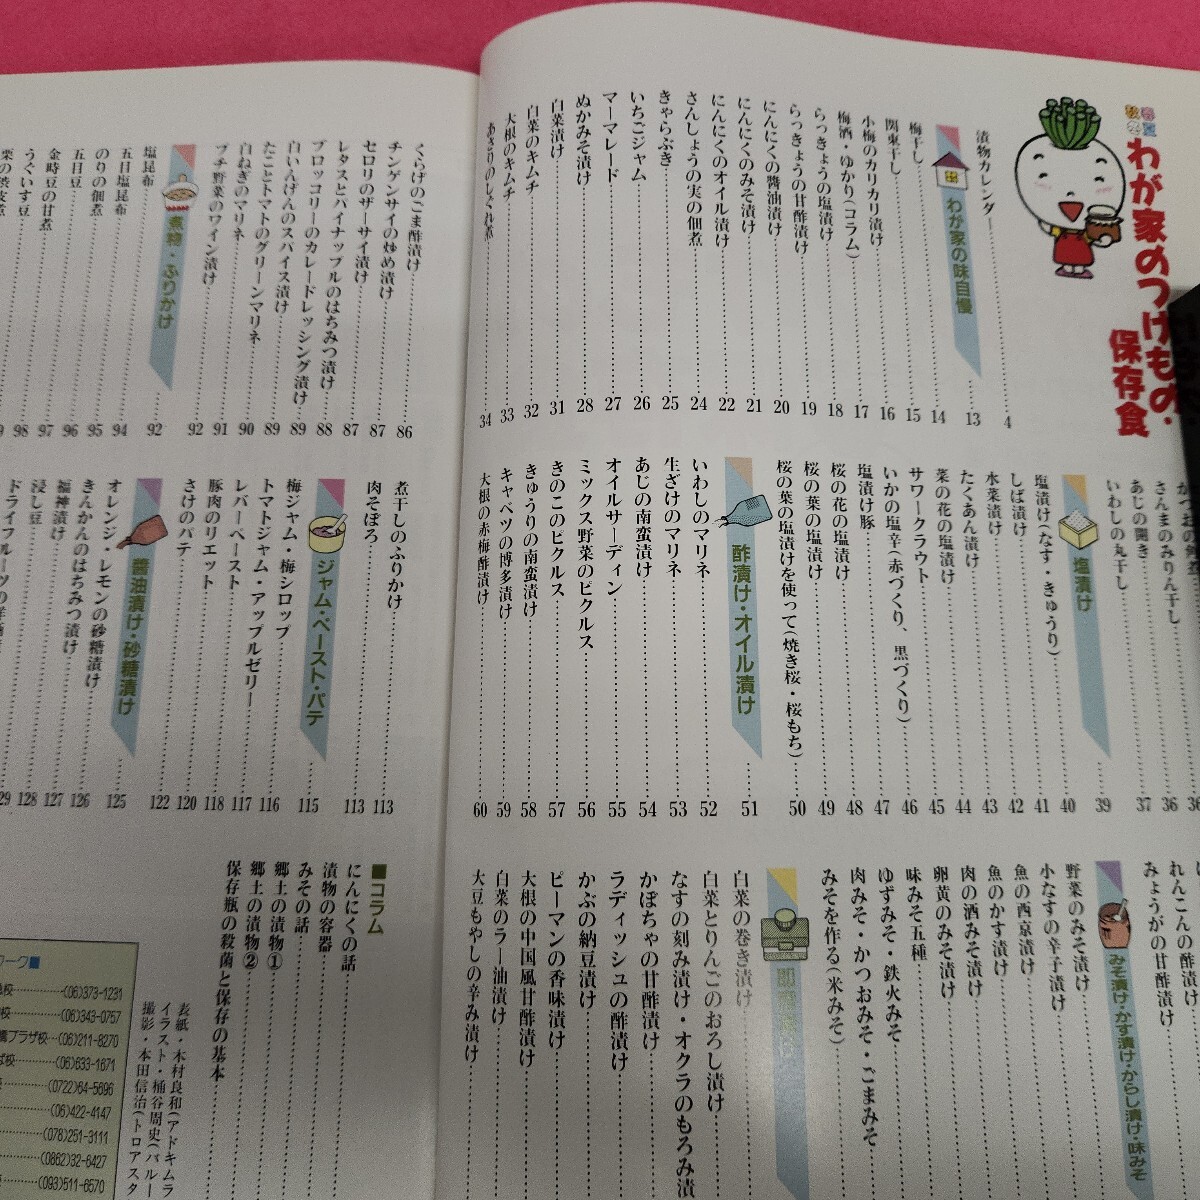 春夏
秋冬
わが家のつけもの・
保存食
漬物カレンダー 4
わが家の味自慢 13
梅干し 14
関東干し 15
小梅のカリカリ漬け 16
梅酒・ゆかり(コラム) 17
らっきょうの塩漬け 18
らっきょうの甘酢漬け 19
にんにくの醬油漬け 20
にんにくのみそ漬け 21
にんにくのオイル漬け 22
さんしょうの実の佃煮 24
きゃらぶき 25
いちごジャム 26
マーマレード 27
ぬかみそ漬け 28
白菜漬け 31
白菜のキムチ 32
大根のキムチ 33
あさりのしぐれ煮 34
さんまのみりん干し 36
あじの開き 36
いわしの丸干し 37
塩漬け 39
塩漬け(なす・きゅうり) 40
しば漬け 41
水菜漬け 42
たくあん漬け 43
菜の花の塩漬け 44
サワークラウト 45
いかの塩辛(赤づくり、黒づくり) 46
塩漬け豚 47
桜の花の塩漬け 48
桜の葉の塩漬け 49
桜の葉の塩漬けを使って(焼き桜・桜もち) 50
酢漬け・オイル漬け 51
いわしのマリネ 52
生ざけのマリネ 53
あじの南蛮漬け 54
オイルサーディン 55
ミックス野菜のピクルス 56
きのこのピクルス 57
きゅうりの南蛮漬け 58
キャベツの博多漬け 59
大根の赤梅酢漬け 60
れんこんの酢漬け
みょうがの甘酢漬け
みそ漬け・かす漬け・からし漬け・味みそ
野菜のみそ漬け
小なすの辛子漬け
魚の西京漬け
魚のかす漬け
肉の酒みそ漬け
卵黄のみそ漬け
味みそ五種
ゆずみそ・鉄火みそ
肉みそ・かつおみそ・ごまみそ
みそを作る(米みそ)
白菜の巻き漬け
白菜とりんごのおろし漬け
なすの刻み漬け・オクラのもろみ漬
かぼちゃの甘酢漬け
ラディッシュの酢漬け
かぶの納豆漬け
ピーマンの香味漬け
大根の中国風甘酢漬け
白菜のラー油漬け
大豆もやしの辛み漬け
くらげのごま酢漬け 86
チンゲンサイの炒め漬け 87
セロリのザーサイ漬け 87
レタスとパイナップルのはちみつ漬け 88
ブロッコリーのカレードレッシング漬け 89
白いんげんのスパイス漬け 89
たことトマトのグリーンマリネ 90
白ねぎのマリネ 91
プチ野菜のワイン漬け 92
煮物・ふりかけ 92
塩昆布 94
五目塩昆布 95
のりの佃煮 96
五目豆 97
金時豆の甘煮 98
うぐいす豆
栗の渋皮煮
煮干しのふりかけ 113
肉そぼろ 113
ジャム・ペースト・パテ 115
梅ジャム・梅シロップ 116
トマトジャム・アップルゼリー 117
レバーペースト 118
豚肉のリエット 120
さけのパテ 122
醬油漬け・砂糖漬け 125
オレンジ・レモンの砂糖漬け 126
きんかんのはちみつ漬け 127
福神漬け 128
浸し豆
■コラム
にんにくの話
漬物の容器
みその話
郷土の漬物①
郷土の漬物②
保存瓶の殺菌と保存の基本
表紙・木村良和(アドキムラ
イラスト・桶谷周史(バルー
撮影・本田信治(トロアスタ
ワーク■
(06)373-1231
(06)343-0757
プラザ校 (06)211-8270
(06)633-1671
(0722)64-5696
(06)422-4147
(078)251-3111
(0862)32-6427
(093)511-6570